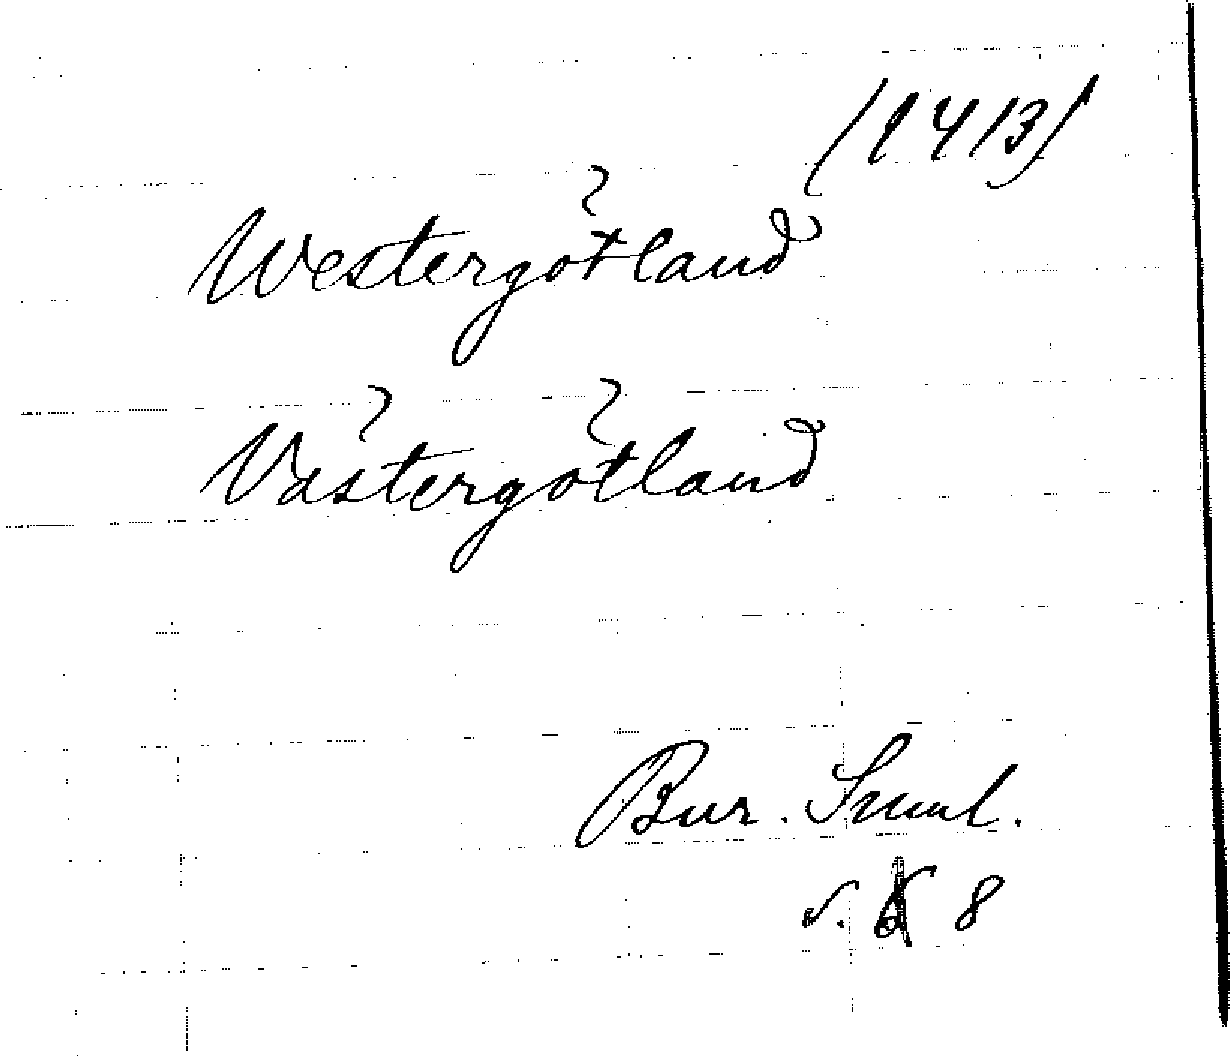 (1413)
Westergötland
Västergötland
Bur. Smml.
s. 8